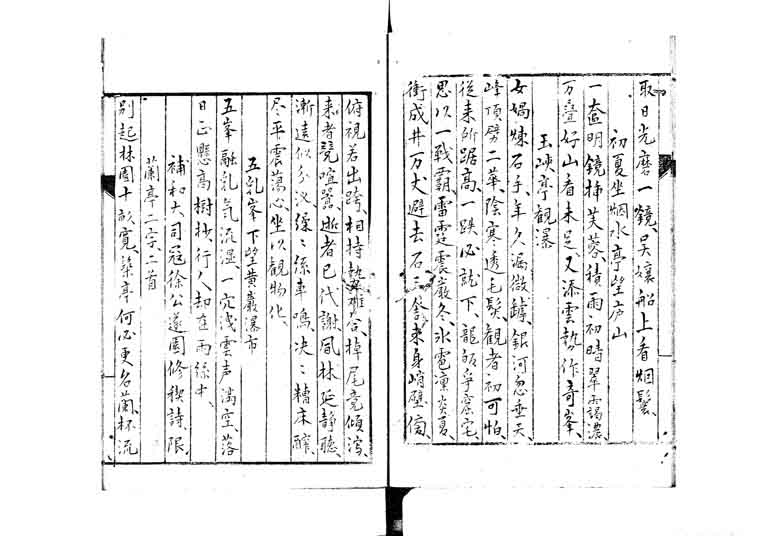 取日光磨一鏡、吴孃船上看烟鬟、
初夏坐烟水亭望庐山
一奩明鏡揷芙蓉、積雨初晴翠靄濃、
万叠好山看未足、又添雲勢作奇峯、
玉峽亭觀瀑
女媧煉石手、年久漏微罅、銀河忽垂天、
峰頂劈二華、陰寒透毛髮、觀者初可怕、
従来所踞高、一跌必就下、龍蛟爭窟宅、
思以一戰霸、雷霆震巖冬、冰雹凜炎夏、
衝成井万丈、避去石三舍、来身峭壁傍、
俯視若出跨、相持勢難合、掉尾竟傾瀉、
来者競喧囂、逝者已代謝、風林延靜聽、
漸遠似分汊、繰〻絲車鳴、决〻糟床醡、
尽平震蕩心、坐以觀物化、
五乳峯下望黄巖瀑布
五峯融乳气流湿、一穴洩雲声満空、落
日正懸高樹抄、行人却在雨絲中、
補和大司冠徐公遂園修禊詩、限
蘭亭二字、二首
別起林園十畝寛、築亭何必更名蘭、杯流